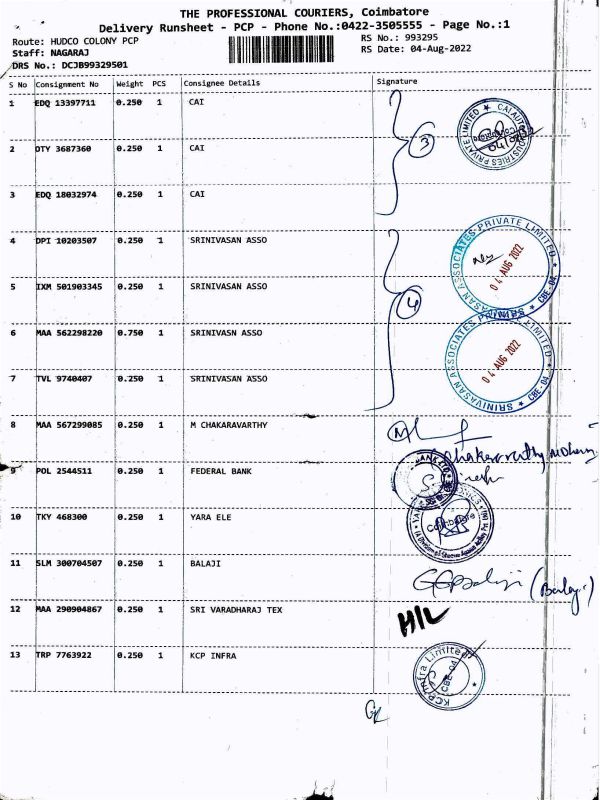 THE PROFESSIONAL COURIERS, Coimbatore
Delivery Runsheet - PCP - Phone No.:0422-3505555 - Page No.:1
Route: HUDCO COLONY PCP
RS No.: 993295
Staff: NAGARAJ
RS Date: 04-Aug-2022
DRS No.: DCJB99329501
S No Consignment No Weight PCS Consignee Details Signature
1 EDQ 13397711 0.250 1 CAI
2 DTY 3687360 0.250 1 CAI
3
3 EDQ 18032974 0.250 1 CAI
4 DPI 10203507 0.250 1 SRINIVASAN ASSO
SRINIVASAN ASSOCIATES PRIVATE LIMITED * CBE-04 *
04 AUG 2022
5 IXM 501903345 0.250 1 SRINIVASAN ASSO
4
6 MAA 562298220 0.750 1 SRINIVASN ASSO
SRINIVASAN ASSOCIATES PRIVATE LIMITED * CBE-04 *
04 AUG 2022
7 TVL 9740407 0.250 1 SRINIVASAN ASSO
8 MAA 567299085 0.250 1 M CHAKARAVARTHY
9 POL 2544511 0.250 1 FEDERAL BANK
10 TKY 468300 0.250 1 YARA ELE
Coimbatore
11 SLM 300704507 0.250 1 BALAJI
(Balaji)
12 MAA 290904867 0.250 1 SRI VARADHARAJ TEX
H/L
13 TRP 7763922 0.250 1 KCP INFRA
KCP Infra Limited
CBE-04